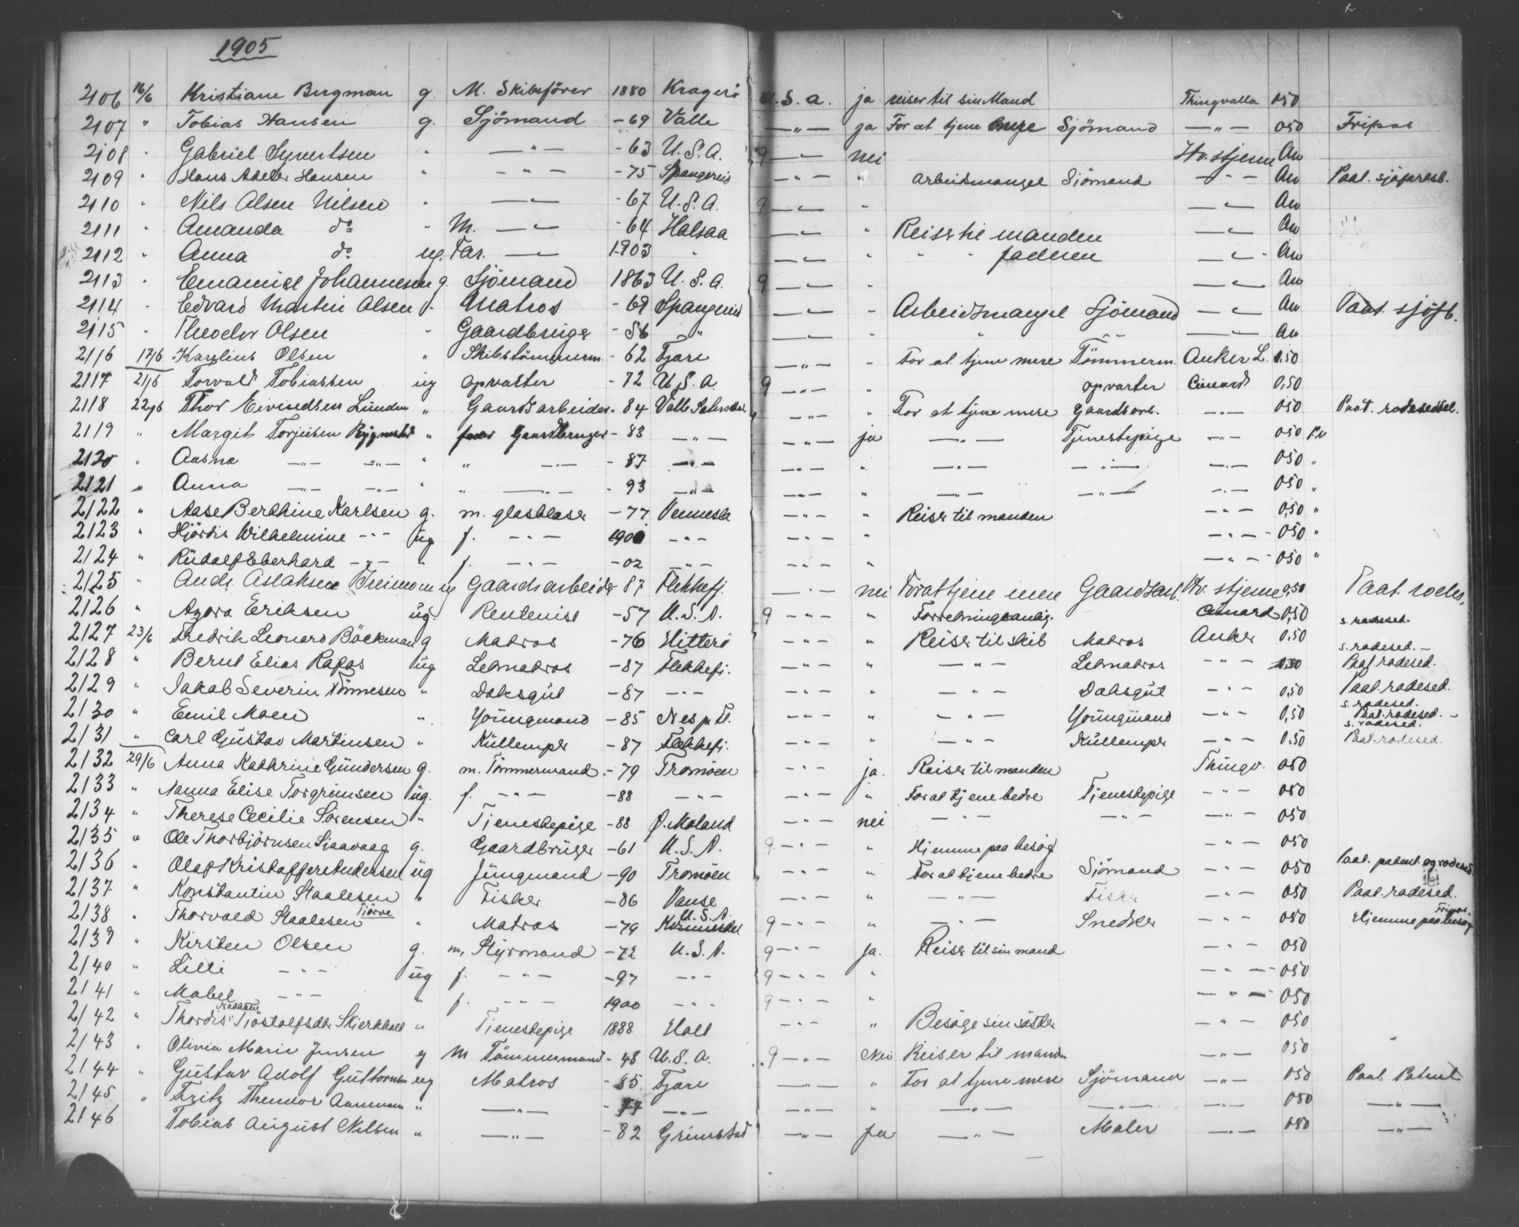 1905
2106 16/6 Kristiane Bergman g. M. Skibsfører 1880 Kragerø U.S.a. ja reiser til sin Mand Thingvalla 050
2107 " Tobias Hansen g. Sjömand -69 Valle —"— ja For at tjene mere Sjömand —"— 050 Fripas
2108 " Gabriel Syvertsen " —"— -63 U.S.A. 9 —"— nei Hv. stjerne An
2109 " Hans Adeler Hansen " —"— -75 Spangereid —"— " arbeidsmangel Sjömand —"— An Paat. sjøfartsb.
2110 " Nils Alsen Nilsen " —"— -67 U.S.A. 9 —"— —"— An
2111 " Amanda do " M. —"— -64 Halsaa —"— " Reiser til manden —"— An
2112 " Anna do ug. Far. —"— 1903 " —"— " " " faderen —"— An
2113 " Emanuel Johannesen g. Sjömand 1863 U.S.A. 9 —"— " —"— An
2114 " Edvard Martin Olsen " Matros -69 Spangereid —"— " Arbeidsmangel Sjömand —"— An Paat. sjöfb.
2115 " Theodor Olsen " Gaardbruger -56 " —"— " " " —"— An
2116 17/6 Karelius Olsen " Skibstömmerm. -62 Fjære —"— " For at tjene mere Tömmerm. Anker L. 0.50
2117 21/6 Torvald Tobiassen ug opvarter -72 U.S.A. 9 —"— " opvarter Cunard 0,50
2118 22/6 Thor Eivindsen Lunden " Gaardsarbeider -84 Valle Sætersdal —"— " For at tjene mere Gaardsarb. —"— 050 Paat. rodeseddel.
2119 " Margit Torjusen Rygnestad " Gaardbruger -83 —"— —"— ja —"— Tjenestepige —"— 050
2120 " Aasne —"— —"— " " —"— -87 —"— —"— " —"— —"— —"— 050 "
2121 " Anna —"— —"— " " —"— -93 —"— —"— " —"— —"— —"— 050 "
2122 " Aase Berthine Karlsen g. m. glasblaser -77 Vennesla —"— " Reiser til manden —"— 0,50 "
2123 " Hjördis Wilhelmine —"— ug f. —"— 1900 —"— —"— " —"— 050 "
2124 " Rudolf Eberhard —"— " f. —"— -02 —"— —"— " —"— 050 "
2125 " Andr. Aslaksen ug Gaardsarbeider 87 Flekkefj. —"— nei For at tjene mere Gaardsarb. Hv. stjerne 0,50 Paat. rodes.
2126 " Agora Eriksen ug. Rentenist -57 U.S.A. 9 —"— " Forretningsanlig. Cunard 0,50
2127 23/6 Fredrik Leonard Böckman g Matros -76 Hitterö —"— " Reiser til skib Matros Anker 0.50 s. rodesed.
2128 " Bernt Elias Rafos ug Letmatros -87 Flekkefj. —"— " —"— Letmatros —"— 0.50 s. rodesed. Paat. rodesed.
2129 " Jakob Severin Tönnesen " Daksgut -87 —"— —"— " —"— Daksgut —"— 0,50 Paat. rodesed.
2130 " Emil Moen " Youngmand -85 Nes p. Fl. —"— " —"— Youngmand —"— 0,50 s. rodesed. Paat. rodesed.
2131 " Carl Gustav Martinsen " Kullemper -87 Flekkefj. —"— " —"— Kullemper —"— 0.50 s. rodesed. Paat. rodesed.
2132 29/6 Anna Kathrine Gundersen g. m. Tömmermand -79 Tromöen —"— ja. Reiser til manden Thingv. 050
2133 " Nanna Elise Torgrimsen ug. f. —"— -88 —"— —"— " For at tjene bedre Tjenestepige —"— 050
2134 " Therese Cecilie Sörensen " Tjenestepige -88 Ø. Moland —"— nei —"— —"— —"— 050
2135 " Ole Thorbjørnsen Sjaavaag g. Gaardbruger -61 U.S.A. 9 —"— " Hjemme paa besøg —"— 050
2136 " Olaf Kristoffer Andersen ug Jungmand -90 Tromöen —"— " For at tjene bedre Sjömand —"— 050 Paat. patent. og rodesed.
2137 " Konstantin Staalesen " Fisker -86 Vanse —"— " —"— Fisker —"— 050 Paat. rodesed.
2138 " Thorvald Staalesen Tjørve " Matros -79 U.S.A. 9 —"— " —"— Snedker —"— 050 Fripas. Hjemme paa besøg
2139 " Kirsten Olsen g. m. Styrmand -72 U.S.A. 9 —"— ja. Reiser til sin mand —"— 050
2140 " Lilli —"— ug f. —"— -97 —"— 9 —"— " —"— 050
2141 " Mabel —"— " f. —"— 1900 —"— 9 —"— " —"— 050
2142 " Thordis Tjöstolfsdtr. Skjerkholt " Tjenestepige 1888 Holt —"— " Besøge sin söster —"— 050
2143 " Olivia Marie Jensen g M Tömmermand -48 U.S.A. 9 —"— Nei Reiser til manden —"— 050
2144 " Gustav Adolf Guttormsen ug Matros -85 Fjære —"— " For at tjene mere Sjömand —"— 050 Paat. Patent
2145 " Fritz Theodor Aanonsen " —"— -77 —"— —"— " —"— —"— —"— 050 —"—
2146 Tobias August Nilsen " —"— -82 Grimstad —"— ja —"— Maler —"— 050 —"—